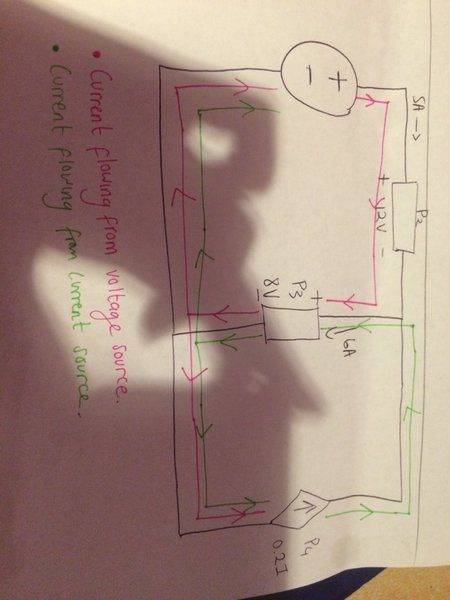 +
-
5A →
P2
+ 12V -
+
P3
8V
-
6A
P4
0.2I
• Current flowing from voltage source.
• Current flowing from current source.